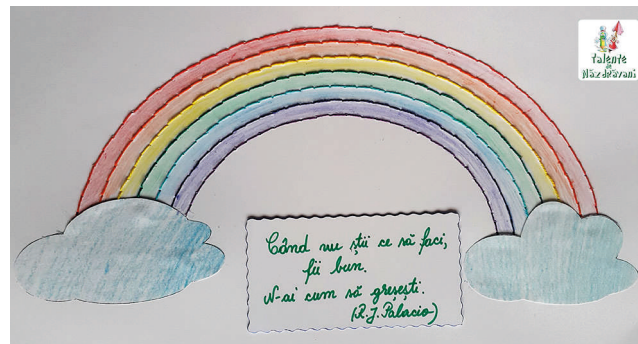 Talente
de
Năzdrăvani
Când nu știi ce să faci,
fii bun.
N-ai cum să greșești.
(R.J. Palacio)